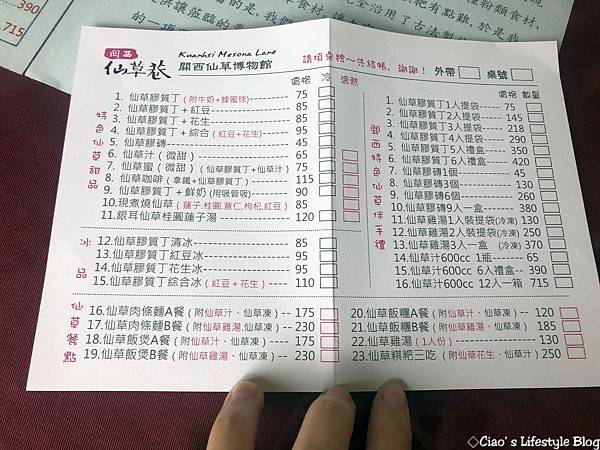 390
715
關西
仙草巷
Kuanhsi Mesona Lane
關西仙草博物館
請填桌號～先結帳，謝謝！
外帶
桌號
價格 冷 溫熱
特色仙草甜品
1. 仙草膠質丁(附牛奶+蜂蜜球)--------- 75
2. 仙草膠質丁+紅豆-------- 85
3. 仙草膠質丁+花生-------- 85
4. 仙草膠質丁+綜合(紅豆+花生)------ 95
5. 仙草膠磚-------- 45
6. 仙草汁(微甜)-------- 65
7. 仙草蜜(微甜)(仙草膠質丁+仙草汁)---- 75
8. 仙草咖啡(拿鐵+仙草膠質丁)-------- 115
9. 仙草膠質丁+鮮奶(用吸管吸)-------- 90
10.現煮燒仙草(蓮子,桂圓,薏仁,枸杞,紅豆) 85
11.銀耳仙草桂圓蓮子湯-------- 120
冰品
12.仙草膠質丁清冰-------- 85
13.仙草膠質丁紅豆冰-------- 95
14.仙草膠質丁花生冰-------- 95
15.仙草膠質丁綜合冰(紅豆+花生)---- 110
仙草餐點
16.仙草肉條麵A餐(附仙草汁、仙草凍)---- 175
17.仙草肉條麵B餐(附仙草雞湯,仙草凍)-- 230
18.仙草飯煲A餐(附仙草汁、仙草凍)---- 175
19.仙草飯煲B餐(附仙草雞湯,仙草凍)-- 230
價格 數量
關西特色仙草伴手禮
1. 仙草膠質丁1人提袋----- 75
2. 仙草膠質丁2人提袋----- 145
3. 仙草膠質丁3人提袋----- 218
4. 仙草膠質丁4人提袋----- 290
5. 仙草膠質丁5人禮盒----- 350
6. 仙草膠質丁6人禮盒----- 420
7. 仙草膠磚1個-------- 45
8. 仙草膠磚3個-------- 130
9. 仙草膠磚6個-------- 260
10.仙草膠磚9人一盒------ 380
11.仙草雞湯1人裝提袋(冷凍) 130
12.仙草雞湯2人裝提袋(冷凍) 250
13.仙草雞湯3人一盒 (冷凍) 370
14.仙草汁600cc 1瓶------ 65
15.仙草汁600cc 6人禮盒-- 390
16.仙草汁600cc 12人一箱 715
20.仙草飯糰A餐(附仙草汁、仙草凍) 120
21.仙草飯糰B餐(附仙草雞湯、仙草凍) 185
22.仙草雞湯(1人份)-------- 130
23.仙草粿粑三吃(附仙草花生、仙草汁) 250
◇Ciao's Lifestyle Blog